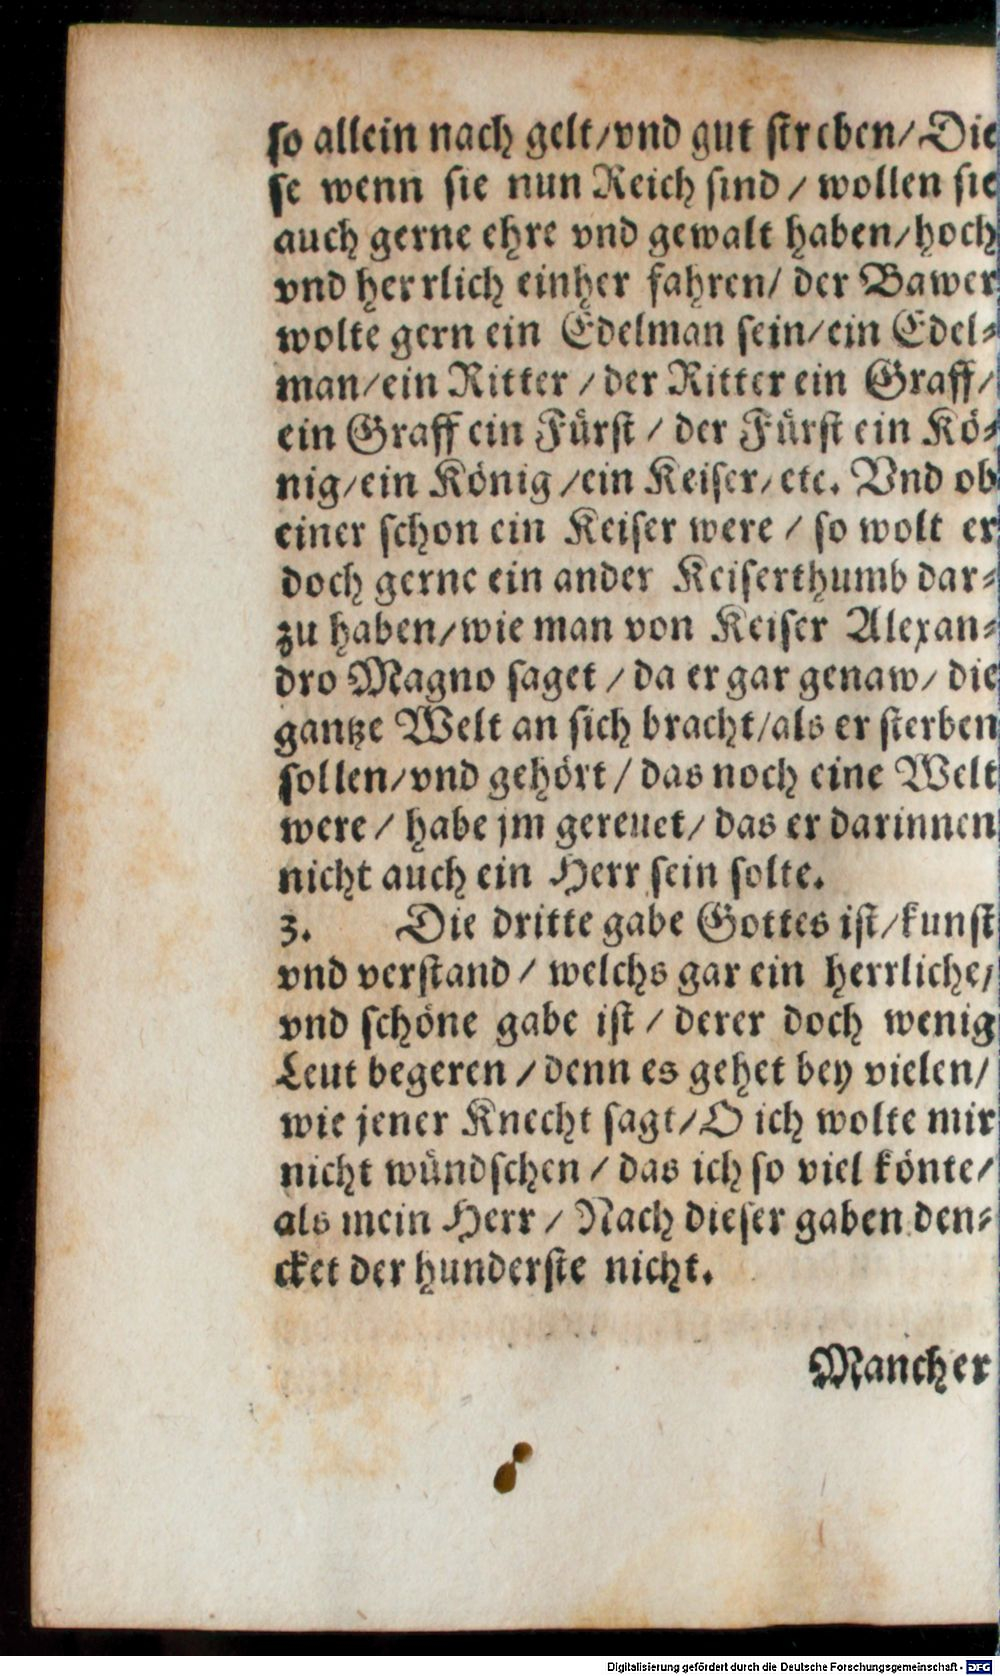 so allein nach gelt/vnd gut streben/Die
se wenn sie nun Reich sind / wollen sie
auch gerne ehre vnd gewalt haben/hoch
vnd herrlich einher fahren/ der Bawer
wolte gern ein Edelman sein/ein Edel-
man/ein Ritter /der Ritter ein Graff/
ein Graff ein Fürst / der Fürst ein Kö-
nig/ein König /ein Keiser/etc. Vnd ob
einer schon ein Keiser were / so wolt er
doch gerne ein ander Keiserthumb dar-
zu haben/wie man von Keiser Alexan-
dro Magno saget / da er gar genaw/ die
gantze Welt an sich bracht/als er sterben
sollen/vnd gehört / das noch eine Welt
were / habe jm gereuet/ das er darinnen
nicht auch ein Herr sein solte.
3. Die dritte gabe Gottes ist/kunst
vnd verstand / welchs gar ein herrliche/
vnd schöne gabe ist / derer doch wenig
Leut begeren / denn es gehet bey vielen/
wie jener Knecht sagt/O ich wolte mir
nicht wündschen / das ich so viel könte/
als mein Herr / Nach dieser gaben den-
cket der hunderste nicht.
Mancher
Digitalisierung gefördert durch die Deutsche Forschungsgemeinschaft - DFG